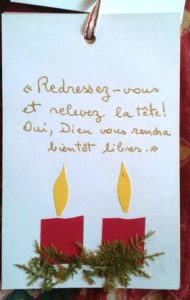 « Redressez-vous
et relevez la tête !
Oui, Dieu vous rendra
bientôt libres. »